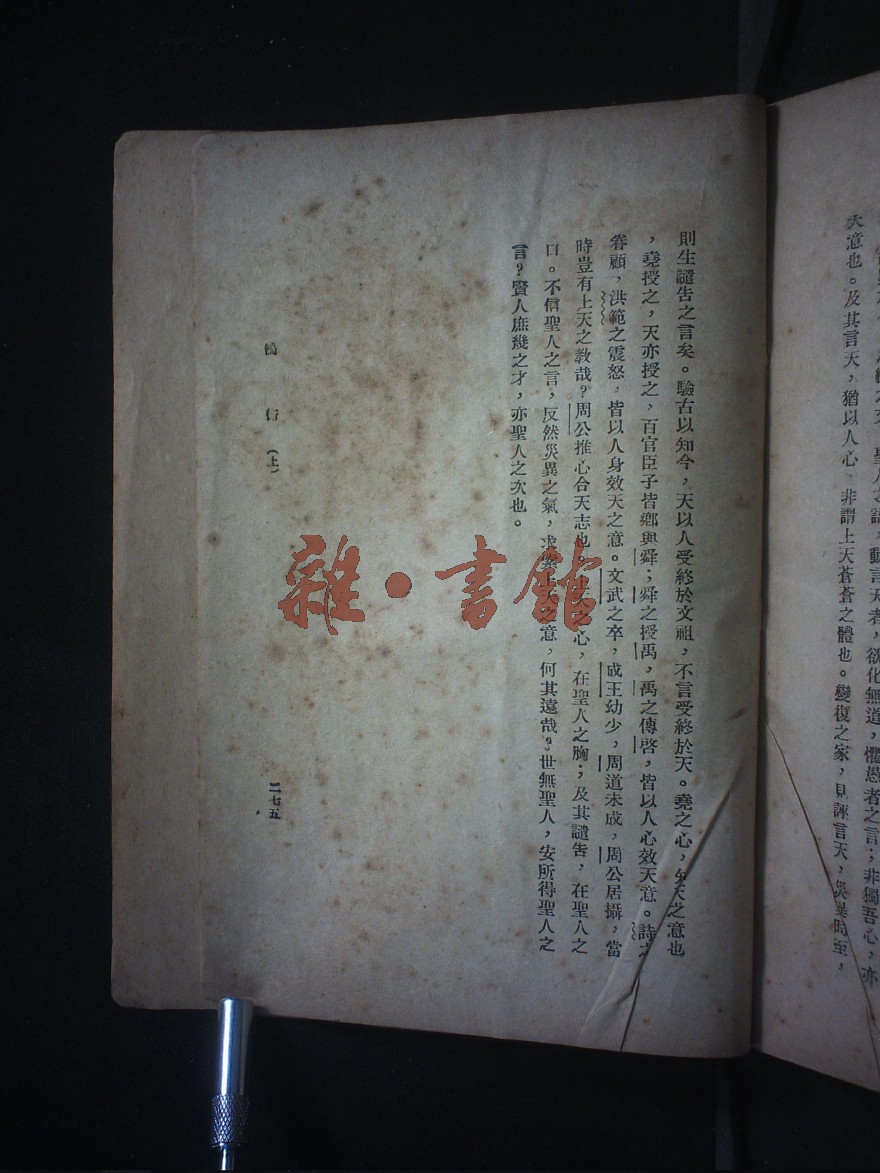 聖人之語，動言天者，欲化無道，懼愚者之言；非獨吾心，亦
天意也。及其言天，猶以人心 非謂上天蒼蒼之體也。變復之家，見誣言天，災異時至，
則生譴告之言矣。驗古以知今，天以人受終於文祖，不言受終於天。堯之心，知天之意也
，堯授之，天亦授之，百官臣子皆鄉與舜；舜之授禹，禹之傳啓，皆以人心效天意。詩之
眷顧，洪範之震怒，皆以人身效天之意。文武之卒，成王幼少，周道未成，周公居攝，當
時豈有上天之教哉？周公推心合天志也。上天之心，在聖人之胸；及其譴告，在聖人之
口。不信聖人之言，反然災異之氣，求索上天之意，何其遠哉？世無聖人，安所得聖人之
言？賢人庶幾之才，亦聖人之次也。
(上)
二七五
雜·書館